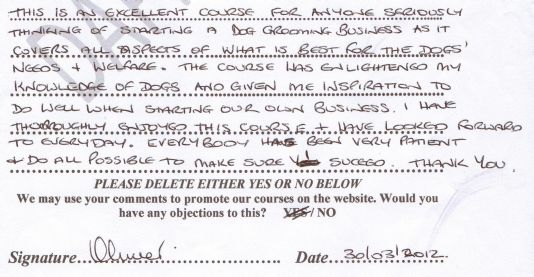 THIS IS AN EXCELLENT COURSE FOR ANYONE SERIOUSLY
THINKING OF STARTING A DOG GROOMING BUSINESS AS IT
COVERS ALL ASPECTS OF WHAT IS BEST FOR THE DOGS'
NEEDS & WELFARE. THE COURSE HAS ENLIGHTENED MY
KNOWLEDGE OF DOGS AND GIVEN ME INSPIRATION TO
DO WELL WHEN STARTING OUR OWN BUSINESS. I HAVE
THOROUGHLY ENJOYED THIS COURSE & HAVE LOOKED FORWARD
TO EVERYDAY. EVERYBODY HAS BEEN VERY PATIENT
& DO ALL POSSIBLE TO MAKE SURE SUCEED. THANK YOU.
PLEASE DELETE EITHER YES OR NO BELOW
We may use your comments to promote our courses on the website. Would you
have any objections to this? YES / NO
Signature... Date...30/03/2012.